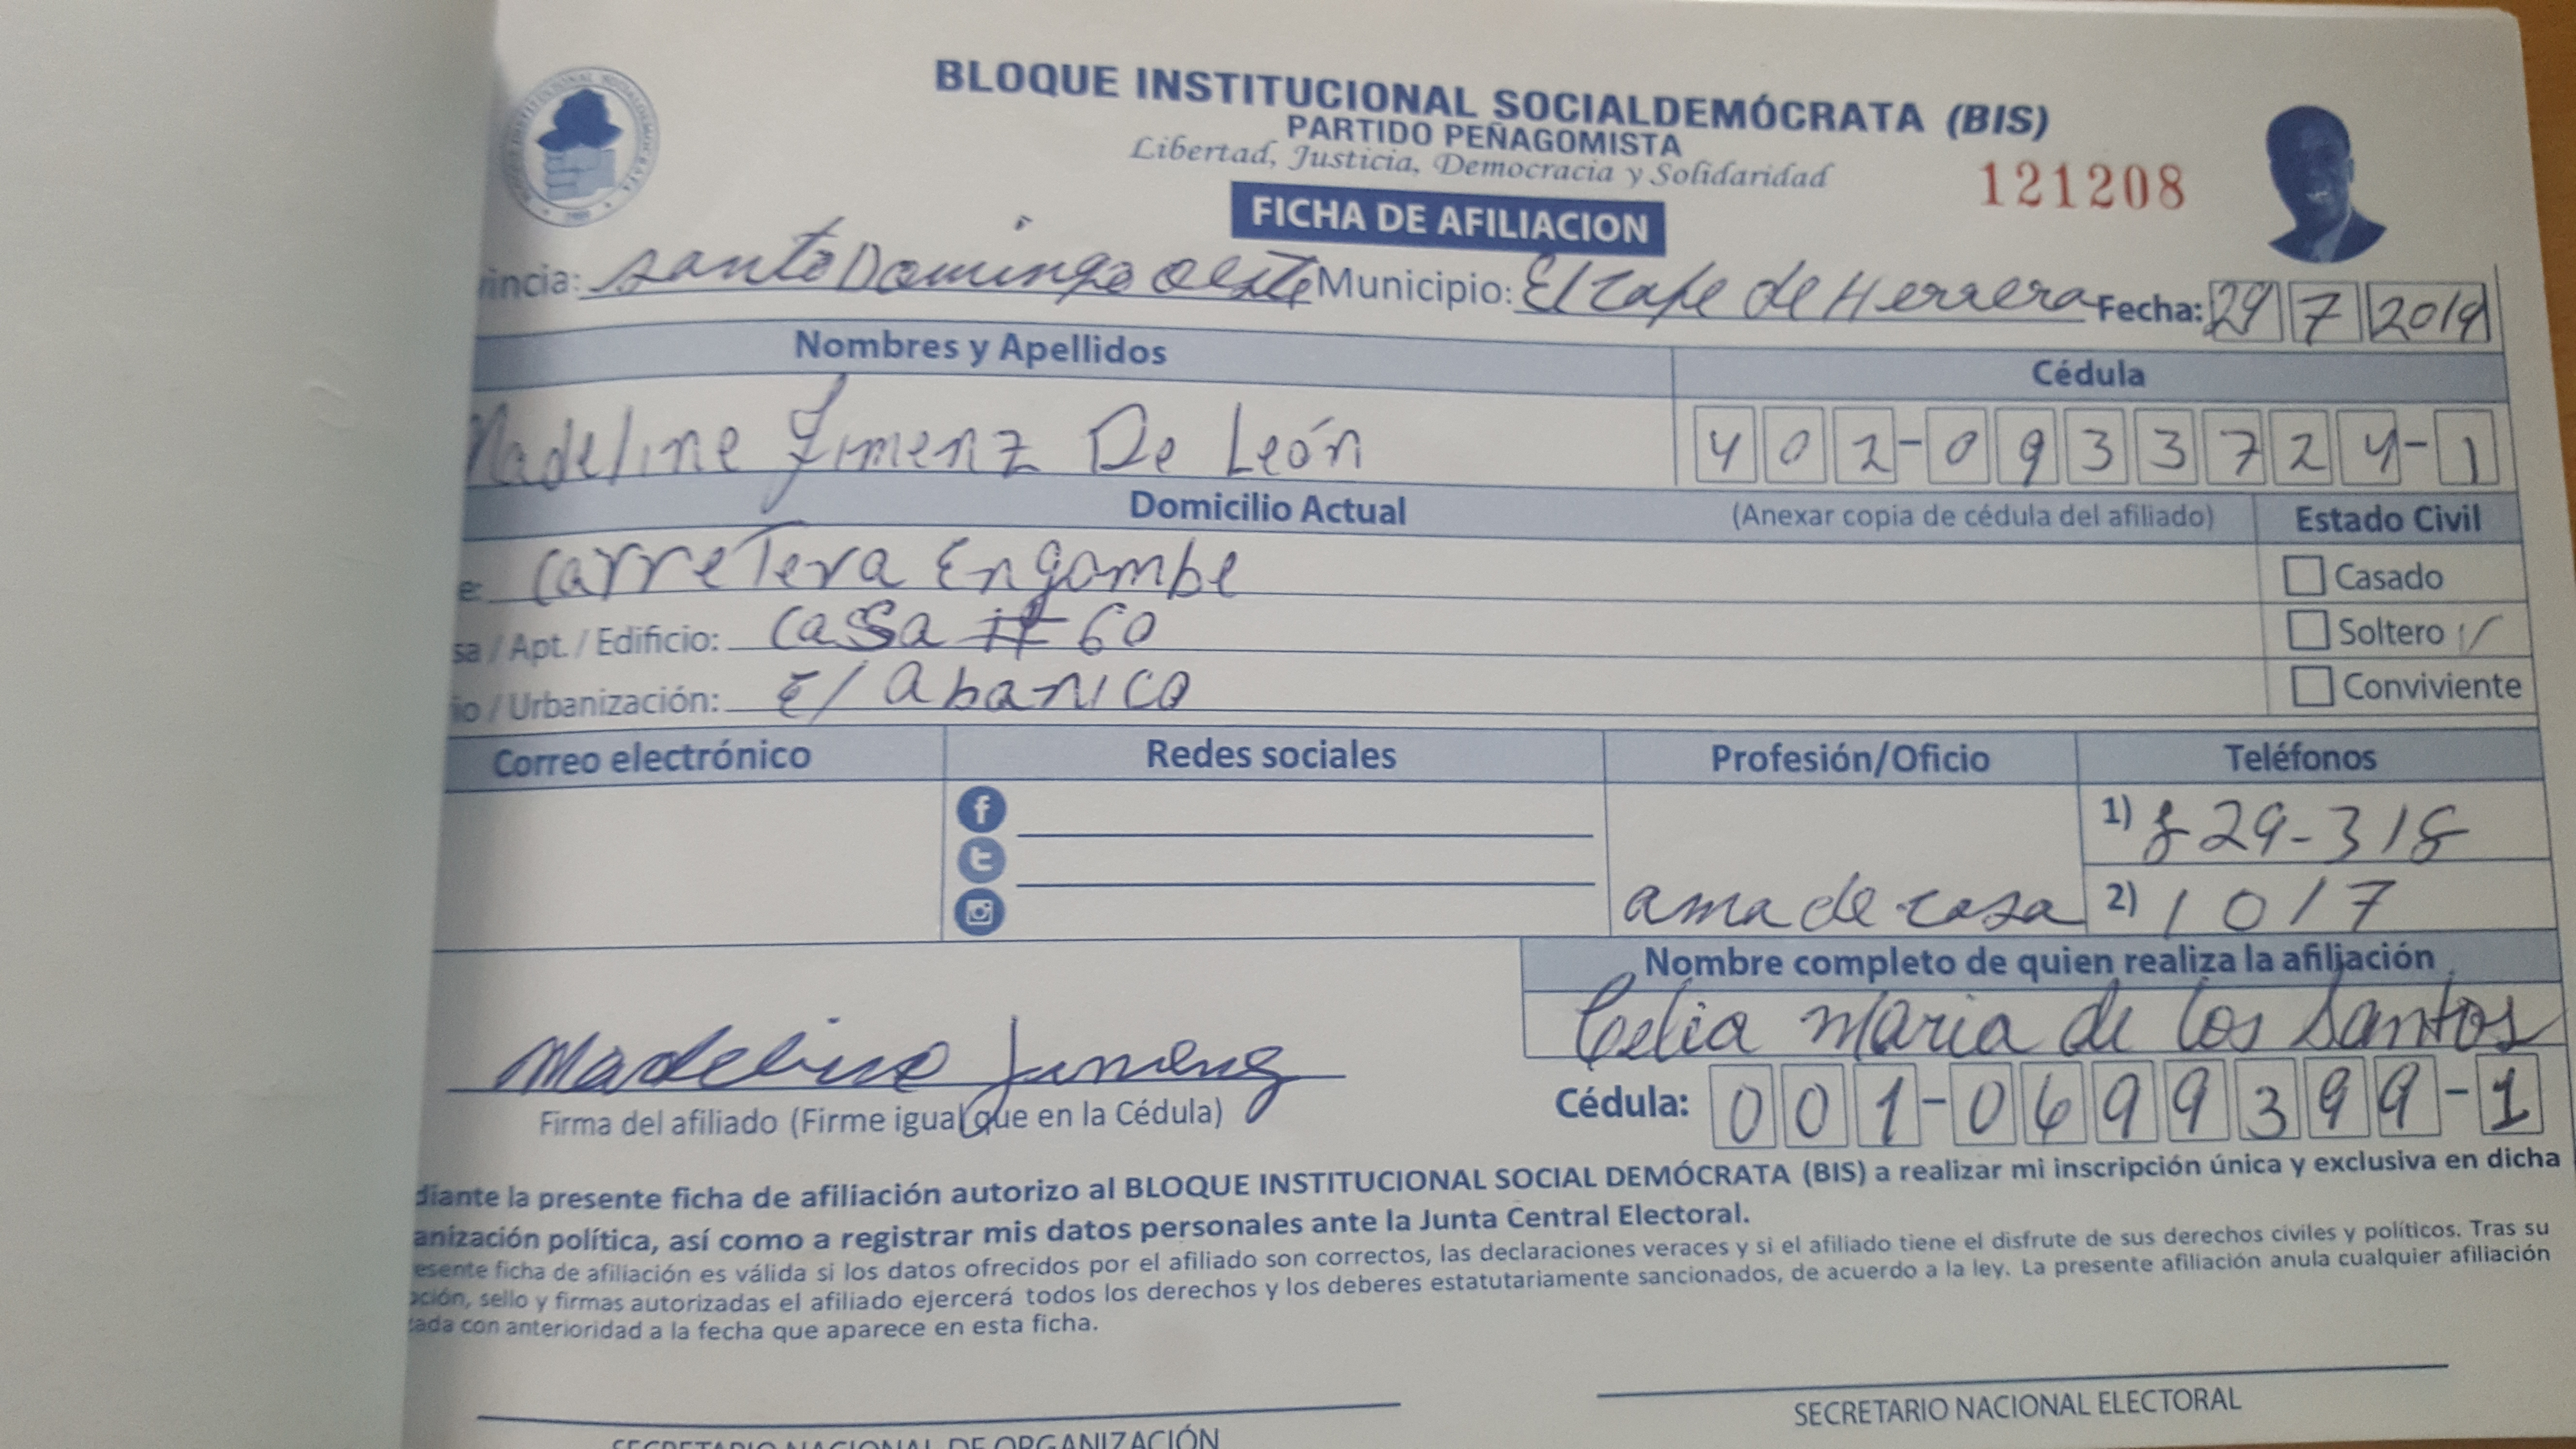 BLOQUE INSTITUCIONAL SOCIALDEMÓCRATA (BIS)
PARTIDO PEÑAGOMISTA
Libertad, Justicia, Democracia y Solidaridad
121208
FICHA DE AFILIACION
incia: Santo Domingo oeste Municipio: El Cafe de Herrera Fecha: 29 7 2019
Nombres y Apellidos Cédula
Madeline Jimenz De León 402-0933724-1
Domicilio Actual (Anexar copia de cédula del afiliado) Estado Civil
e: carretera Engombe Casado
sa / Apt. / Edificio: casa # 60 Soltero ✓
io / Urbanización: E/ abanico Conviviente
Correo electrónico Redes sociales Profesión/Oficio Teléfonos
1) 829-318
ama de casa 2) 1017
Nombre completo de quien realiza la afiliación
Celia Maria de los Santos
Madeline Jimenez
Firma del afiliado (Firme igual que en la Cédula) Cédula: 001-0699399-1
diante la presente ficha de afiliación autorizo al BLOQUE INSTITUCIONAL SOCIAL DEMÓCRATA (BIS) a realizar mi inscripción única y exclusiva en dicha
anización política, así como a registrar mis datos personales ante la Junta Central Electoral.
esente ficha de afiliación es válida si los datos ofrecidos por el afiliado son correctos, las declaraciones veraces y si el afiliado tiene el disfrute de sus derechos civiles y políticos. Tras su
ción, sello y firmas autorizadas el afiliado ejercerá todos los derechos y los deberes estatutariamente sancionados, de acuerdo a la ley. La presente afiliación anula cualquier afiliación
ada con anterioridad a la fecha que aparece en esta ficha.
SECRETARIO NACIONAL DE ORGANIZACIÓN SECRETARIO NACIONAL ELECTORAL